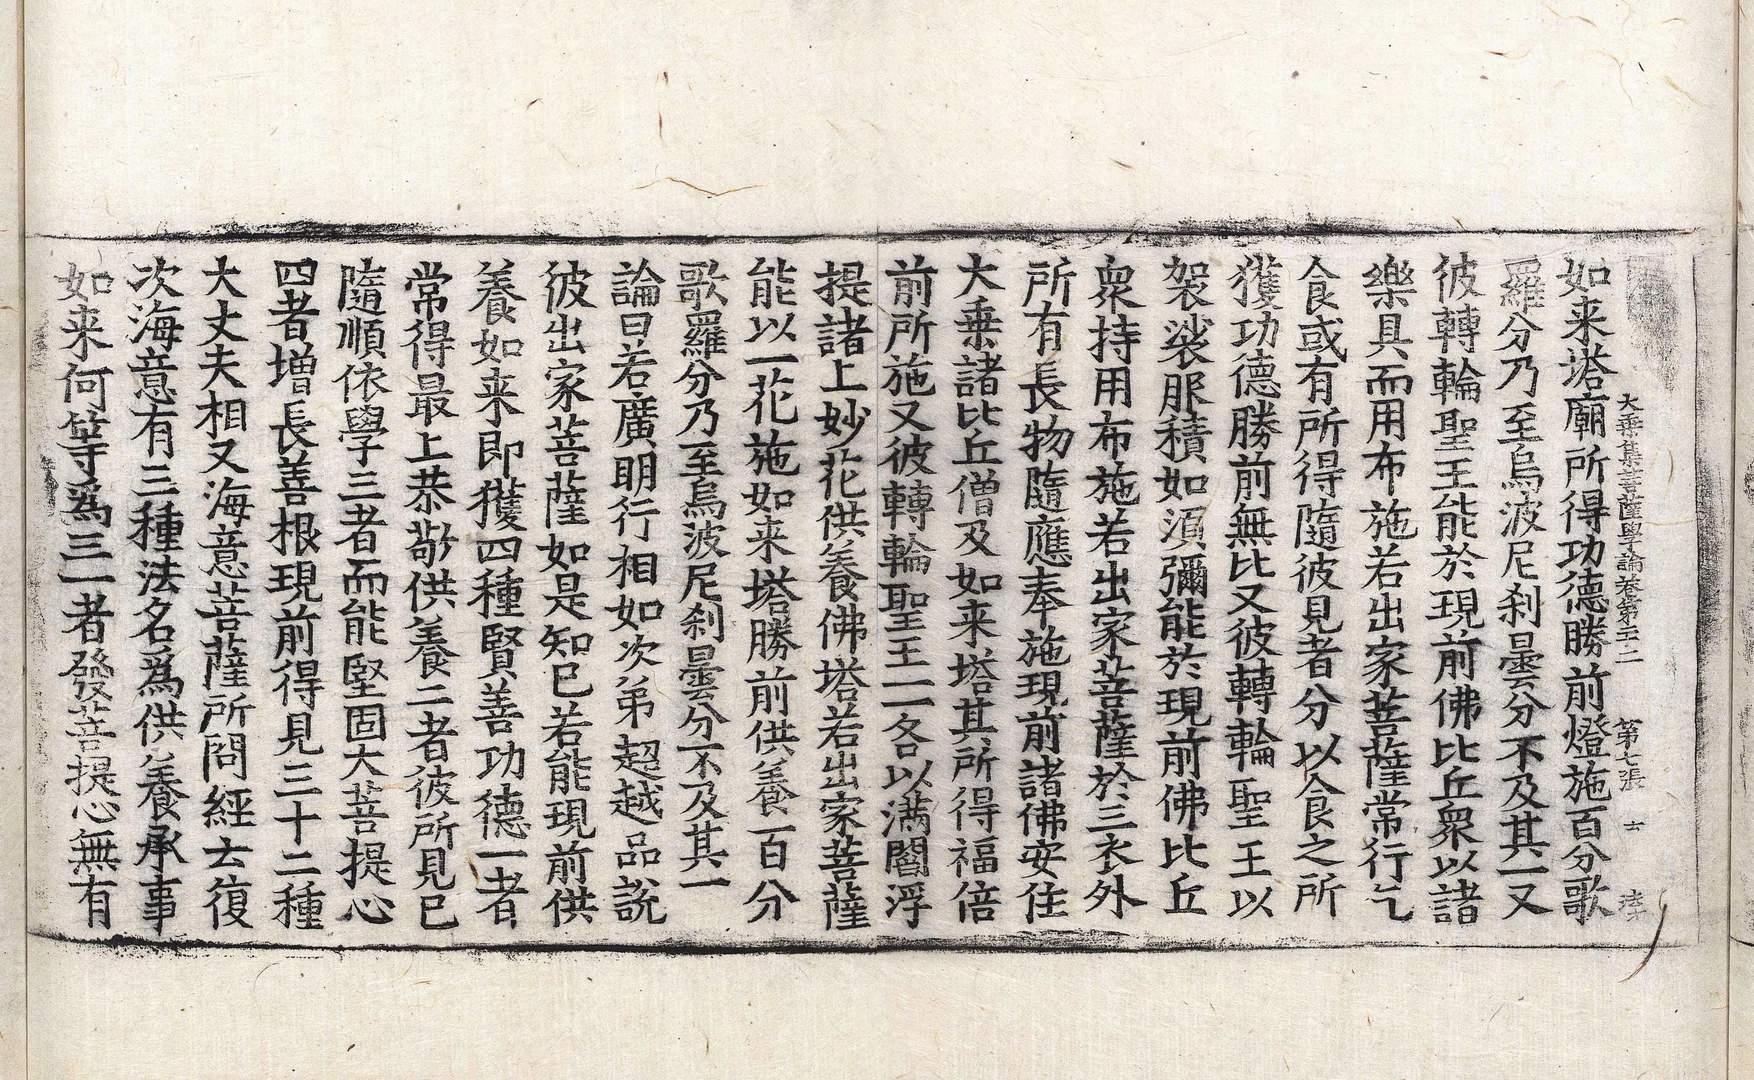 大乗集菩薩學論卷第二十二 第七張 士
如来塔廟所得功德勝前燈施百分歌
羅分乃至烏波尼刹曇分不及其一又
彼轉輪聖王能於現前佛比丘衆以諸
樂具而用布施若出家菩薩常行乞
食或有所得隨彼見者分以食之所
獲功德勝前無比又彼轉輪聖王以
袈裟服積如須彌能於現前佛比丘
衆持用布施若出家菩薩於三衣外
所有長物隨應奉施現前諸佛安住
大乗諸比丘僧及如来塔其所得福倍
前所施又彼轉輪聖王一一各以滿閻浮
提諸上妙花供養佛塔若出家菩薩
能以一花施如来塔勝前供養百分
歌羅分乃至烏波尼刹曇分不及其一
論曰若廣明行相如次第超越品說
彼出家菩薩如是知已若能現前供
養如来即獲四種賢善功德一者
常得最上恭敬供養二者彼所見已
隨順依學三者而能堅固大菩提心
四者增長善根現前得見三十二種
大丈夫相又海意菩薩所問經云復
次海意有三種法名爲供養承事
如来何等爲三一者發菩提心無有